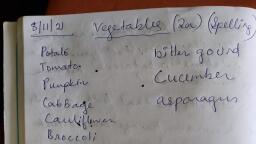 3/11/21 Vegetables (2a) (Spelling)
Potato
Tomato
Pumpkin
Cabbage
Cauliflower
Broccoli
bitter gourd
Cucumber
asparagus